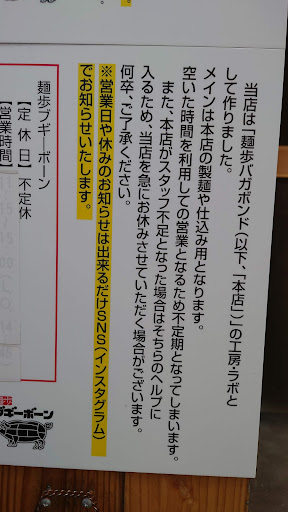 当店は「麺歩バガボンド(以下、「本店」)」の工房・ラボと
して作りました。
メインは本店の製麺や仕込み用となります。
空いた時間を利用しての営業となるため不定期となってしまいます。
また、本店がスタッフ不足となった場合はそちらのヘルプに
入るため、当店を急にお休みさせていただく場合がございます。
何卒、ご了承ください。
※営業日や休みのお知らせは出来るだけSNS(インスタグラム)
でお知らせいたします。
麺歩ブギーボーン
【定休日】不定休
【営業時間】
ブギーボーン